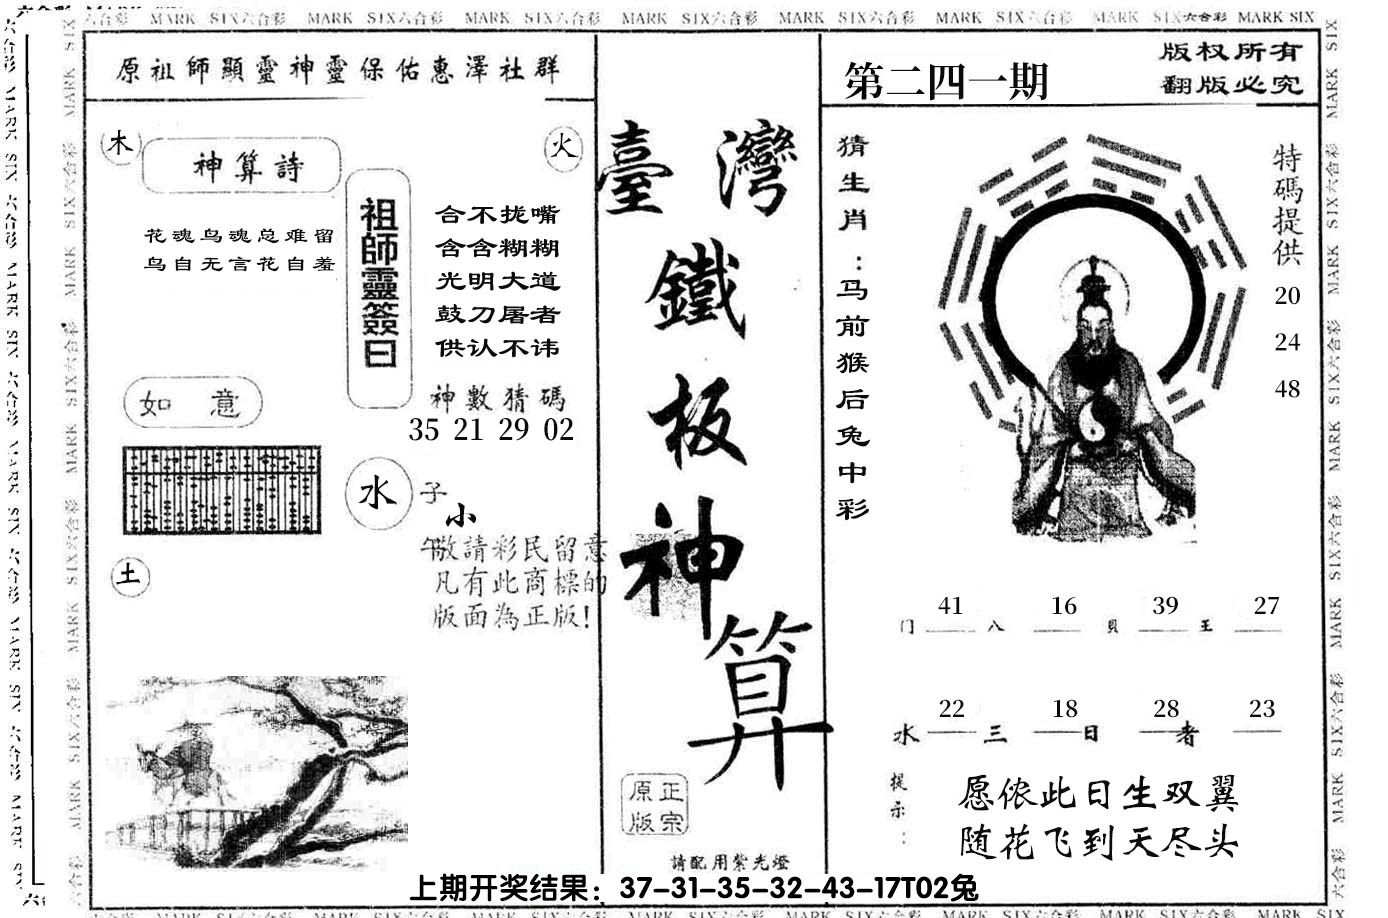 六合彩 MARK SIX六合彩 MARK SIX六合彩 MARK SIX六合彩 MARK SIX六合彩 MARK SIX六合彩 MARK SIX六合彩 MARK SIX六合彩 MARK SIX
原祖師顯靈神靈保佑惠澤社群
木
神算詩
火
花魂鸟魂总难留
鸟自无言花自羞
祖師靈簽曰
合不拢嘴
含含糊糊
光明大道
鼓刀屠者
供认不讳
如 意
神數猜碼
35 21 29 02
水
子
小
午
敬請彩民留意
凡有此商標的
版面為正版!
土
臺灣
鐵
板
神
算
原正
版宗
請配用紫光燈
第二四一期
版权所有
翻版必究
猜生肖:马前猴后兔中彩
特碼提供
20
24
48
41 16 39 27
门 八 貝 王
22 18 28 23
水 三 日 者
提示:
愿侬此日生双翼
随花飞到天尽头
上期开奖结果：37-31-35-32-43-17T02兔